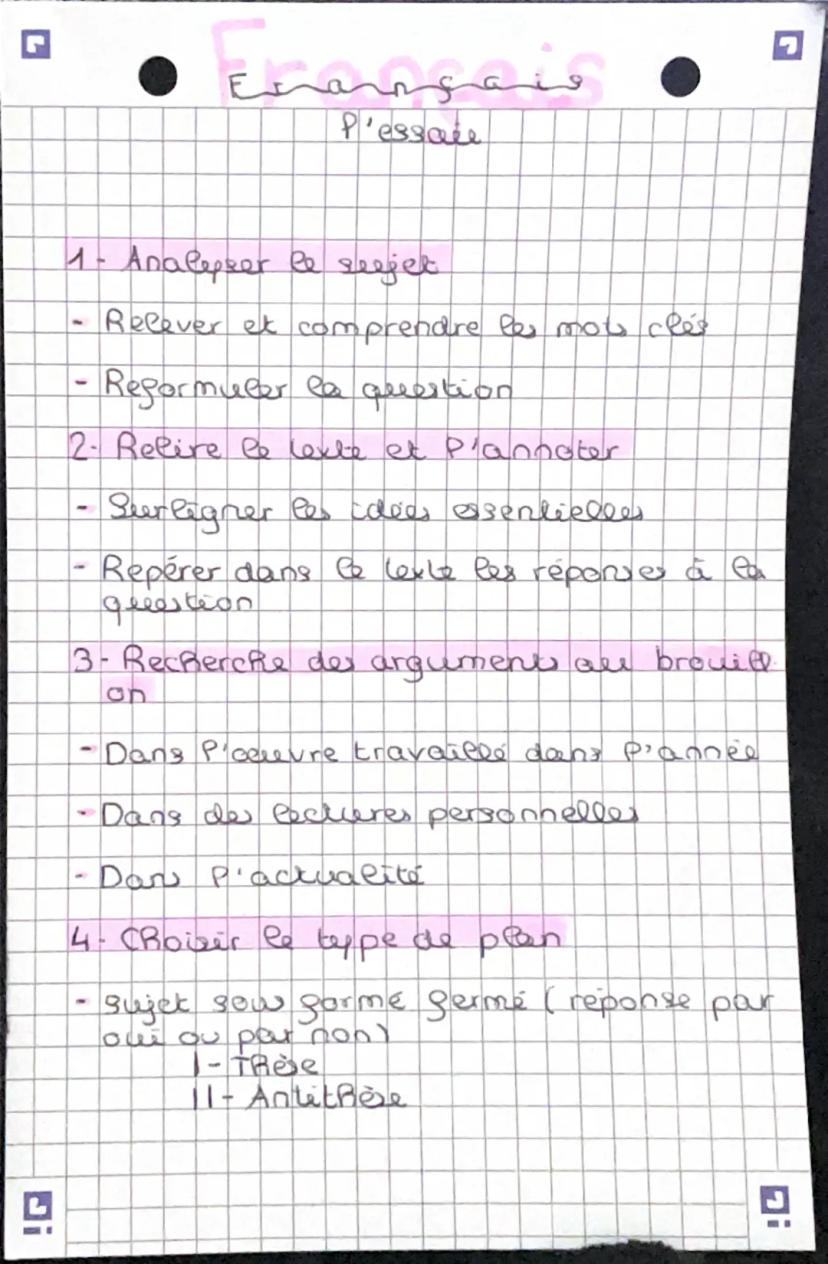 Français
l'essaie
1- Analyser le sujet
- Relever et comprendre les mots clés
- Reformuler la question
2- Relire le texte et l'annoter
- Surligner les idées essentielles
- Repérer dans le texte les réponses à la
question
3- Recherche des arguments au brouill
on
- Dans l'oeuvre travaillé dans l'année
- Dans des lectures personnelles
- Dans l'actualité
4- Choisir le type de plan
- sujet sous formé fermé (réponse par
oui ou par non)
I- Thèse
II- Antithèse